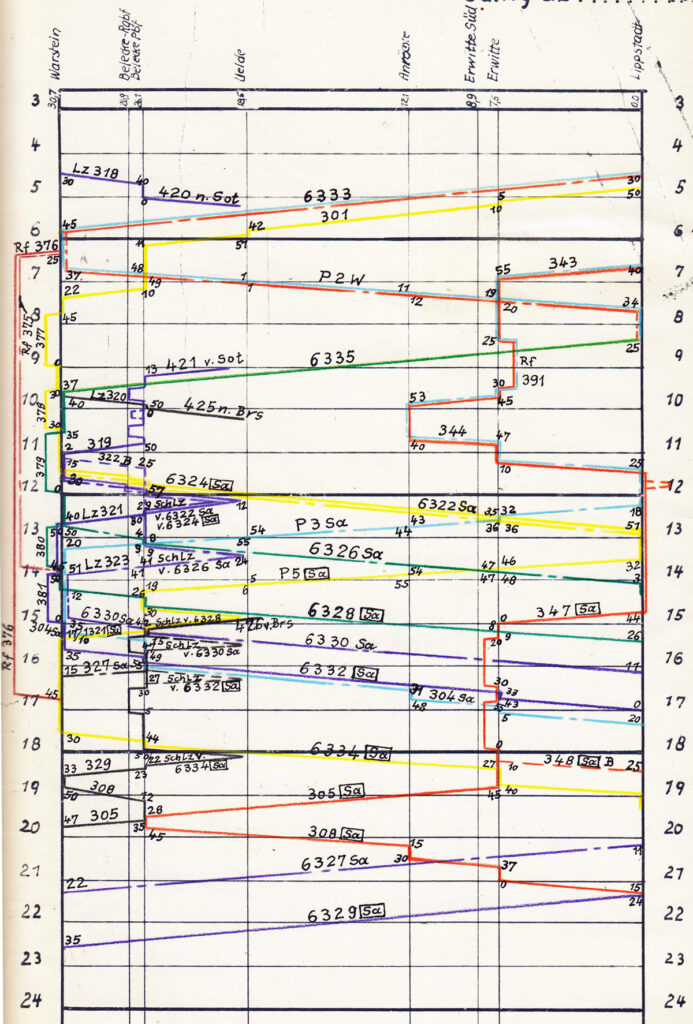 Warstein
Belecke-Rgbf
Belecke Pbf
Uelde
Anröchte
Erwitte Süd
Erwitte
Lippstadt
30,7
26,1
18,6
12,1
8,9
7,5
0,0
3 3
4 4
Lz 318 40
30 0 420 n. Sot 6333 5 30
5 5
301 10 50
45 42
6 6
Rf 376 51
25
37 48 49 1 P2W 11 55 343 40
7 7
22 10 1 12 19 20 34
8 8
45
Rf 375
377
25
9 9
0 13 421 v. Sot 6335 Rf 25
37 30 391
30 Lz320 50 53 45
10 10
40 0 425 n. Brs
378
30 35 344 47
11 11
2 319 50 40
15 322 B 25 10 25
379
12 12
30 57 6324 Sa
0 29 Schlz 12 6322 Sa 35 32 18
40 Lz321 v. 6322 Sa
30 v. 6324 Sa
13 13
50 P3 Sa 43 36 36 51
380 20 8 54 44
9 9 55 6326 Sa
51 Lz323 41 Schlz 24 47 46 32
14 14
v. 6326 Sa P5 Sa 54 47 48
41 5 55 3
12 26 19 6
381 50 6328 Sa 347 Sa 44
15 15
35 6330 Sa Schlz v. 6328 426 v. Brs 0
304 Sa 9 26
Schlz 6330 Sa
v. 6330 Sa
16 16
35 49 6332 Sa 11
15 327 Sa 27 Schlz 30
v. 6332 Sa 304 Sa 33
Rf 376 45 30 48 43 0
17 17
5 5 20
18 18
30 44 0
6334 Sa
33 329 22 Schlz v. 27 10 348 Sa B 25
23 6334 Sa
19 19
50 308 12 305 Sa 45 40
28
20 20
47 305 35 45 308 Sa 15
11
21 21
22 6327 Sa 30 37
0 15
22 22
6329 Sa 24
35
23 23
24 24